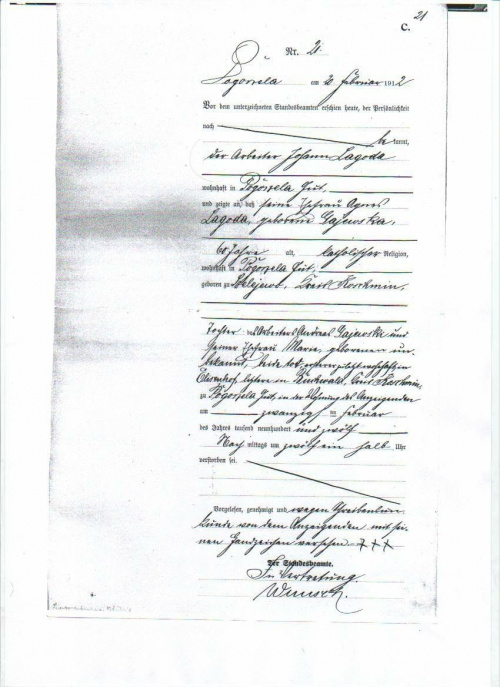 21
C.
Nr. 21.
Pogorzela am 20 Februar 1912
Vor dem unterzeichneten Standesbeamten erschien heute, der Persönlichkeit
nach be kannt,
der Arbeiter Johann Lagoda
wohnhaft in Pogorzela Gut,
und zeigte an, daß seine Ehefrau Agnes
Lagoda, geborene Gajewska,
60 Jahre alt, katholischer Religion,
wohnhaft in Pogorzela Gut,
geboren zu Kreis Koschmin,
Tochter des Arbeiters Andreas Gajewski und
seiner Ehefrau Marie, geborenen un-
bekannt, beide tot, ersterer zuletzt wohnhaft in
letztere in Kreis Koschmin,
zu Pogorzela Gut, in der Wohnung des Anzeigenden
am zwanzigsten Februar
des Jahres tausend neunhundert und zwölf
Nach mittags um zwölf ein halb Uhr
verstorben sei.
Vorgelesen, genehmigt und wegen Schreibenun-
kunde von dem Anzeigenden mit sei-
nen Handzeichen versehen. +++
Der Standesbeamte.
In Vertretung